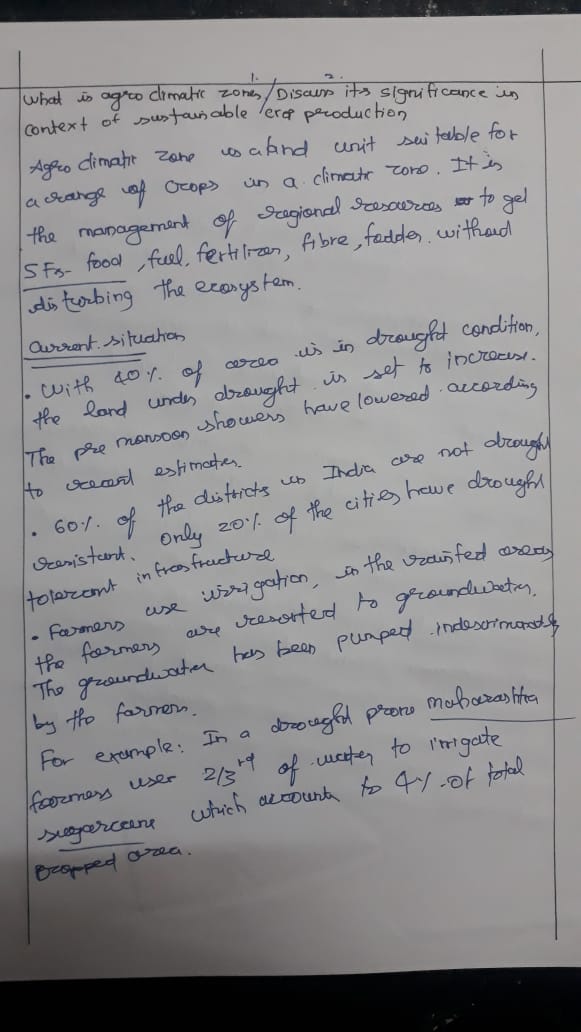 1. 2.
What is agro climatic zones/Discuss its significance in
context of sustainable crop production
Agro climatic zone is a land unit suitable for
a range of crops in a climatic zone. It is
the management of regional resources to get
5 Fs- food, fuel, fertilizer, fibre, fodder. without
disturbing the ecosystem.
Current situation
• With 40% of area is in drought condition,
the land under drought is set to increase.
The pre monsoon showers have lowered according
to recent estimates.
• 60% of the districts in India are not drought
resistant. Only 20% of the cities have drought
tolerant infrastructure
• Farmers use irrigation, in the rainfed areas
the farmers are resorted to groundwater.
The groundwater has been pumped indescrimanately
by the farmers.
For example: In a drought prone maharashtra
farmers user 2/3rd of water to irrigate
sugarcane which accounts to 4% of total
cropped area.